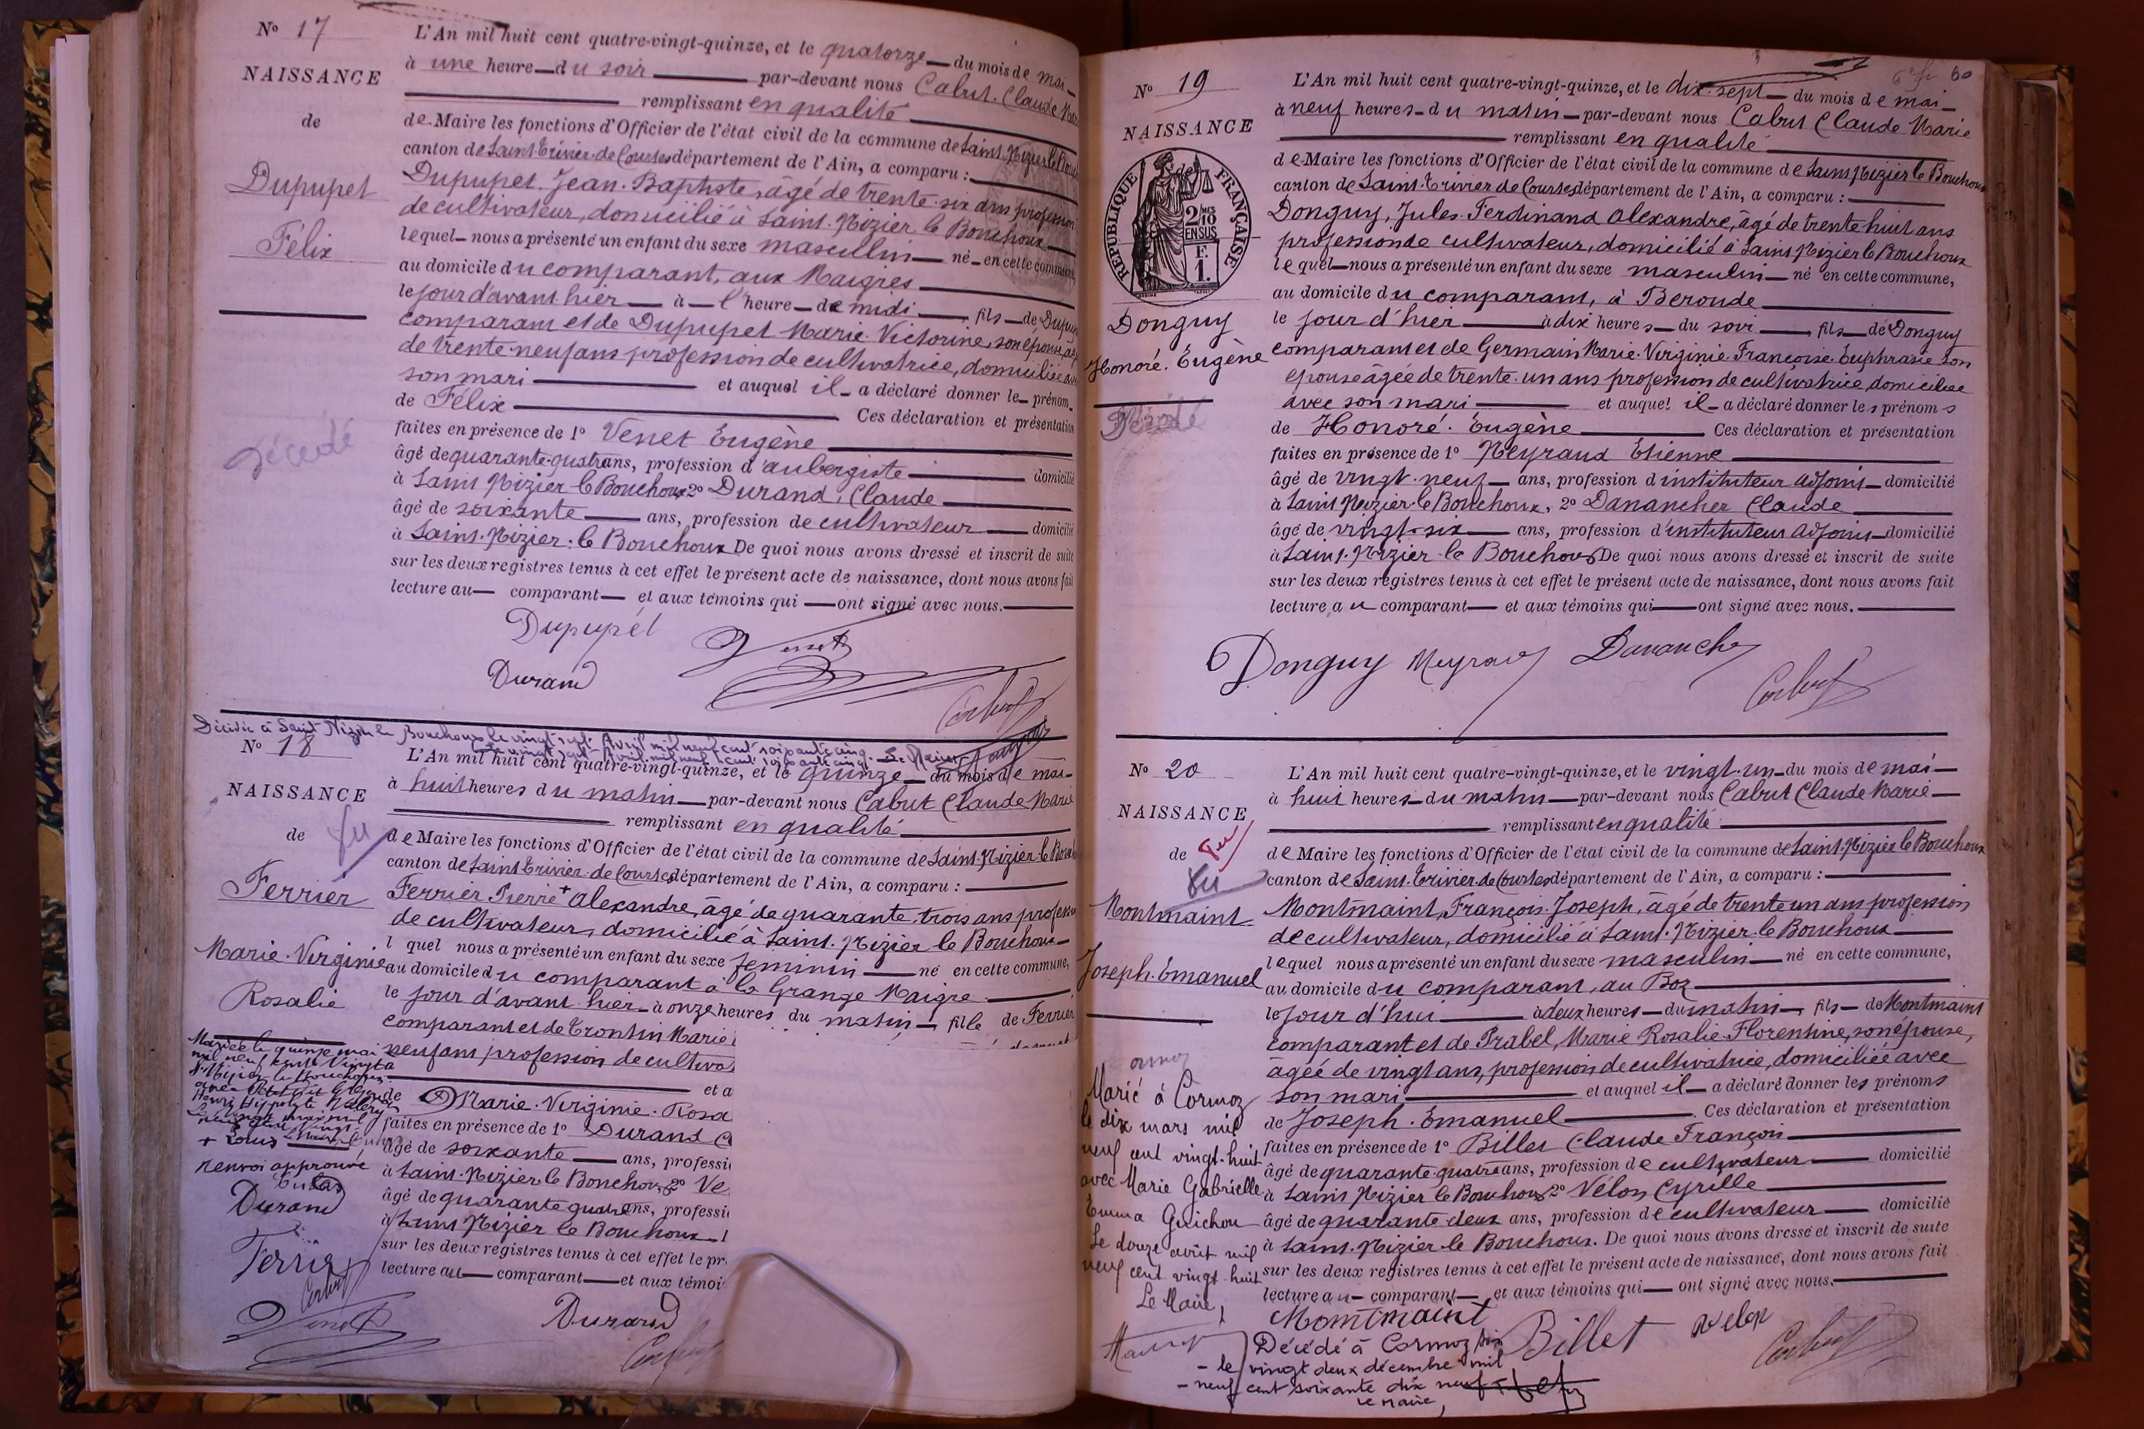 Nº 17
NAISSANCE
de
Dupupet
Félix
décédé
L'An mil huit cent quatre-vingt-quinze, et le quatorze du mois de mai
à une heure du soir par-devant nous Cabut Claude
remplissant en qualité
de Maire les fonctions d'Officier de l'état civil de la commune de Saint-Nizier le
canton de Saint-Trivier-de-Courtes département de l'Ain, a comparu :
Dupupet Jean-Baptiste, âgé de trente-six ans profession
de cultivateur, domicilié à Saint-Nizier le Bouchoux
lequel nous a présenté un enfant du sexe masculin né en cette commune
au domicile du comparant, aux Maigres
le jour d'avant hier à l'heure de midi, fils de
comparant et de Dupupet Marie Victorine, son épouse,
de trente-neuf ans profession de cultivatrice, domiciliée
son mari et auquel il a déclaré donner le prénom
de Félix Ces déclaration et présentation
faites en présence de 1º Venet Eugène
âgé de quarante-quatre ans, profession d'aubergiste domicilié
à Saint Nizier le Bouchoux 2º Durand, Claude
âgé de soixante ans, profession de cultivateur domicilié
à Saint-Nizier-le Bouchoux De quoi nous avons dressé et inscrit de suite
sur les deux registres tenus à cet effet le présent acte de naissance, dont nous avons fait
lecture au comparant et aux témoins qui ont signé avec nous.
Dupupet
Durand
Décédée à Saint Nizier le Bouchoux le vingt sept Avril mil neuf cent soixante cinq. Le Maire
Nº 18
NAISSANCE
de
Vu
Ferrier
Marie-Virginie
Rosalie
L'An mil huit cent quatre-vingt-quinze, et le quinze du mois de mai
à huit heures du matin par-devant nous Cabut Claude Marie
remplissant en qualité
de Maire les fonctions d'Officier de l'état civil de la commune de Saint-Nizier le
canton de Saint-Trivier-de-Courtes département de l'Ain, a comparu :
Ferrier Pierre + Alexandre, âgé de quarante-trois ans
de cultivateur, domicilié à Saint-Nizier le Bouchoux
l quel nous a présenté un enfant du sexe féminin né en cette commune,
au domicile du comparant à la Grange Maigre
le jour d'avant-hier à onze heures du matin, fille de Ferrier
comparant et de Trontin Marie
neuf ans profession de
et a
de Marie-Virginie-Rosa
faites en présence de 1º Durand
âgé de soixante ans,
à Saint-Nizier le Bouchoux 2º
âgé de quarante quatre ans,
à Saint Nizier le Bouchoux
sur les deux registres tenus à cet effet le
lecture au comparant et aux
Mariée le quinze mai
+ Louis
renvoi approuvé
Durand
Durand
Nº 19
NAISSANCE
RÉPUBLIQUE FRANÇAISE
2/10 EN SUS
F. 1.
Donguy
Honoré-Eugène
Décédé
60
L'An mil huit cent quatre-vingt-quinze, et le dix-sept du mois de mai
à neuf heures du matin par-devant nous Cabut Claude Marie
remplissant en qualité
de Maire les fonctions d'Officier de l'état civil de la commune de Saint Nizier le Bouchoux
canton de Saint-Trivier de Courtes département de l'Ain, a comparu :
Donguy, Jules-Ferdinand Alexandre, âgé de trente huit ans
profession de cultivateur, domicilié à Saint Nizier le Bouchoux
lequel nous a présenté un enfant du sexe masculin né en cette commune,
au domicile du comparant, à Beronde
le jour d'hier à dix heures du soir, fils de Donguy
comparant et de Germain Marie-Virginie Françoise Euphrasie son
épouse âgée de trente-un ans profession de cultivatrice, domiciliée
avec son mari et auquel il a déclaré donner les prénoms
de Honoré-Eugène Ces déclaration et présentation
faites en présence de 1º Meyraud Etienne
âgé de vingt-neuf ans, profession d'instituteur adjoint domicilié
à Saint Nizier-le Bouchoux, 2º Danancher Claude
âgé de vingt-six ans, profession d'instituteur adjoint domicilié
à Saint-Nizier-le Bouchoux De quoi nous avons dressé et inscrit de suite
sur les deux registres tenus à cet effet le présent acte de naissance, dont nous avons fait
lecture au comparant et aux témoins qui ont signé avec nous.
Donguy Meyraud Danancher
Nº 20
NAISSANCE
de
Vu
Vu
Montmaint
Joseph-Emanuel
L'An mil huit cent quatre-vingt-quinze, et le vingt-un du mois de mai
à huit heures du matin par-devant nous Cabut Claude Marie
remplissant en qualité
de Maire les fonctions d'Officier de l'état civil de la commune de Saint-Nizier le Bouchoux
canton de Saint-Trivier-de-Courtes département de l'Ain, a comparu :
Montmaint, François-Joseph, âgé de trente un ans profession
de cultivateur, domicilié à Saint-Nizier-le Bouchoux
lequel nous a présenté un enfant du sexe masculin né en cette commune,
au domicile du comparant, au Boz
le jour d'hui à deux heures du matin, fils de Montmaint
comparant et de Prabel, Marie Rosalie Florentine, son épouse,
âgée de vingt ans, profession de cultivatrice, domiciliée avec
son mari et auquel il a déclaré donner les prénoms
de Joseph-Emanuel Ces déclaration et présentation
faites en présence de 1º Billet Claude François
âgé de quarante quatre ans, profession de cultivateur domicilié
à Saint Nizier le Bouchoux 2º Velon Cyrille
âgé de quarante-deux ans, profession de cultivateur domicilié
à Saint-Nizier-le Bouchoux. De quoi nous avons dressé et inscrit de suite
sur les deux registres tenus à cet effet le présent acte de naissance, dont nous avons fait
lecture au comparant et aux témoins qui ont signé avec nous.
Marié à Cormoz
le dix mars mil
neuf cent vingt-huit
avec Marie Gabrielle
Emma Guichon
Le douze avril mil
neuf cent vingt-huit
Le Maire,
Montmaint Billet
Décédé à Cormoz
le vingt deux décembre mil
neuf cent soixante dix neuf
Le Maire,